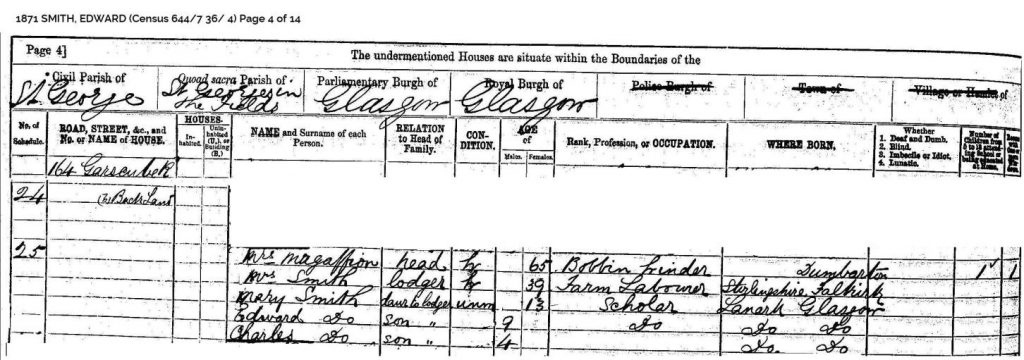 1871 SMITH, EDWARD (Census 644/7 36/ 4) Page 4 of 14
Page 4]
The undermentioned Houses are situate within the Boundaries of the
Civil Parish of
St. George
Quoad sacra Parish of
St Georges in the Fields
Parliamentary Burgh of
Glasgow
Royal Burgh of
Glasgow
Police Burgh of
Town of
Village or Hamlet of
No. of Schedule.
ROAD, STREET, &c., and No. or NAME of HOUSE.
HOUSES.
In-habited.
Unin-habited (U.), or Building (B.)
NAME and Surname of each Person.
RELATION to Head of Family.
CON-DITION.
AGE of
Males. Females.
Rank, Profession, or OCCUPATION.
WHERE BORN.
Whether
1. Deaf and Dumb.
2. Blind.
3. Imbecile or Idiot.
4. Lunatic.
Number of Children from
164
24 Back Land
25
Mrs head 65 Bobbin Dumbarton 1 1
Mrs Smith lodger 39 Farm Labourer Sterlingshire Falkirk
Mary Smith lodger unm 13 Scholar Lanark Glasgow
Edward Do son " 9 Do Do Do
Charles Do son " 4 Do Do